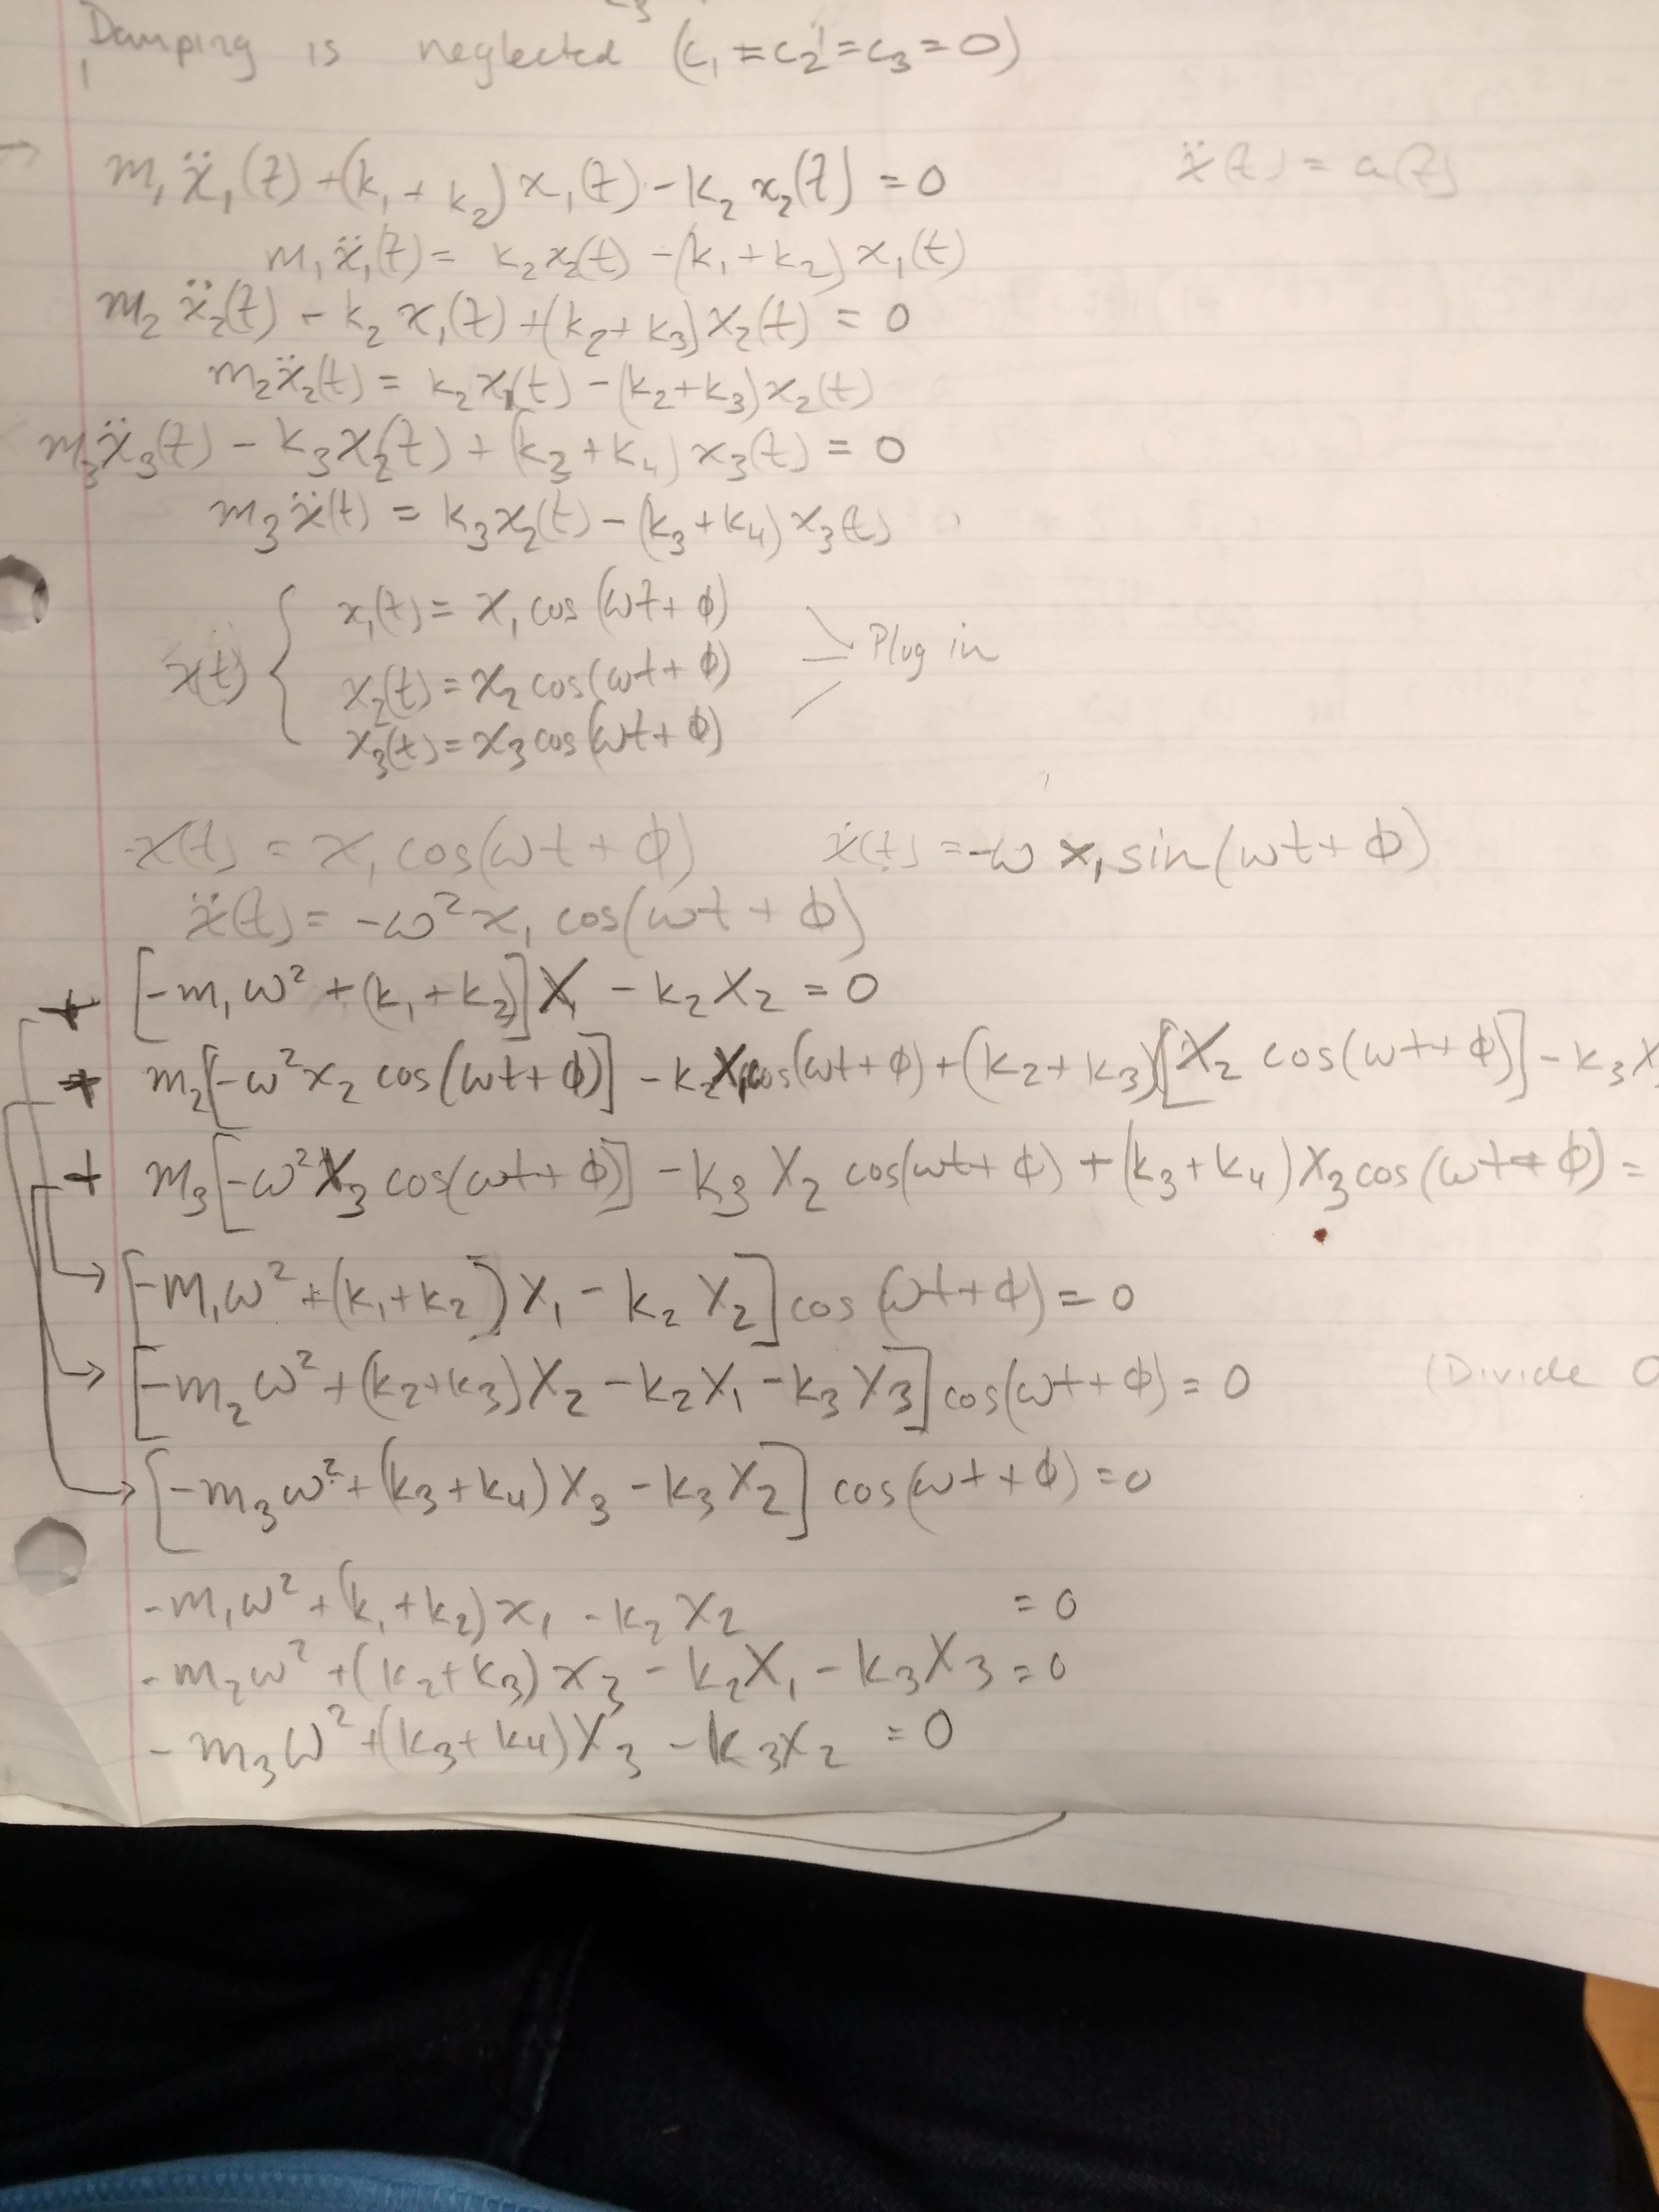 Damping is neglected (c₁ = c₂ = c₃ = 0)
→ m₁ẍ₁(t) + (k₁ + k₂)x₁(t) - k₂x₂(t) = 0 ẍ(t) = a(t)
m₁ẍ₁(t) = k₂x₂(t) - (k₁ + k₂)x₁(t)
m₂ẍ₂(t) - k₂x₁(t) + (k₂ + k₃)x₂(t) = 0
m₂ẍ₂(t) = k₂x₁(t) - (k₂ + k₃)x₂(t)
m₃ẍ₃(t) - k₃x₂(t) + (k₃ + k₄)x₃(t) = 0
m₃ẍ(t) = k₃x₂(t) - (k₃ + k₄)x₃(t)
x₁(t) = X₁ cos(ωt + ϕ)
x(t) { x₂(t) = X₂ cos(ωt + ϕ) Plug in
x₃(t) = X₃ cos(ωt + ϕ)
x(t) = x₁ cos(ωt + ϕ) ẋ(t) = -ω x₁ sin(ωt + ϕ)
ẍ(t) = -ω² x₁ cos(ωt + ϕ)
+ [-m₁ω² + (k₁ + k₂)]X₁ - k₂X₂ = 0
+ m₂[-ω²x₂ cos(ωt + ϕ)] - k₂X₁cos(ωt + ϕ) + (k₂ + k₃)[X₂ cos(ωt + ϕ)] - k₃X
+ m₃[-ω²X₃ cos(ωt + ϕ)] - k₃X₂ cos(ωt + ϕ) + (k₃ + k₄)X₃cos(ωt + ϕ) =
→ [-m₁ω² + (k₁ + k₂)X₁ - k₂X₂] cos(ωt + ϕ) = 0
→ [-m₂ω² + (k₂ + k₃)X₂ - k₂X₁ - k₃X₃] cos(ωt + ϕ) = 0 (Divide
→ [-m₃ω² + (k₃ + k₄)X₃ - k₃X₂] cos(ωt + ϕ) = 0
-m₁ω² + (k₁ + k₂)x₁ - k₂X₂ = 0
-m₂ω² + (k₂ + k₃)x₂ - k₂X₁ - k₃X₃ = 0
-m₃ω² + (k₃ + k₄)X₃ - k₃x₂ = 0